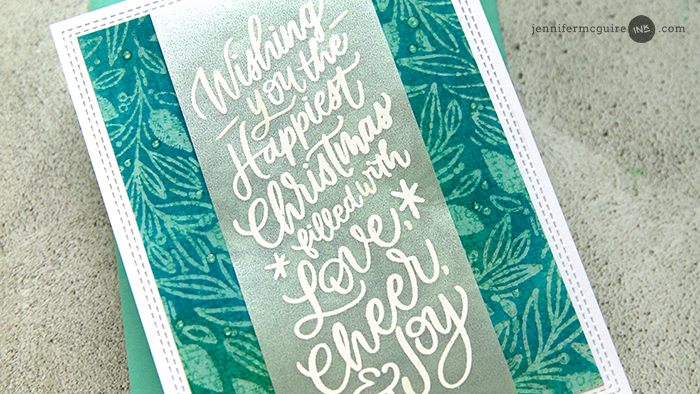 jennifermcguire INK .com
Wishing
you the
Happiest
Christmas
filled with
Love,
Cheer,
& Joy